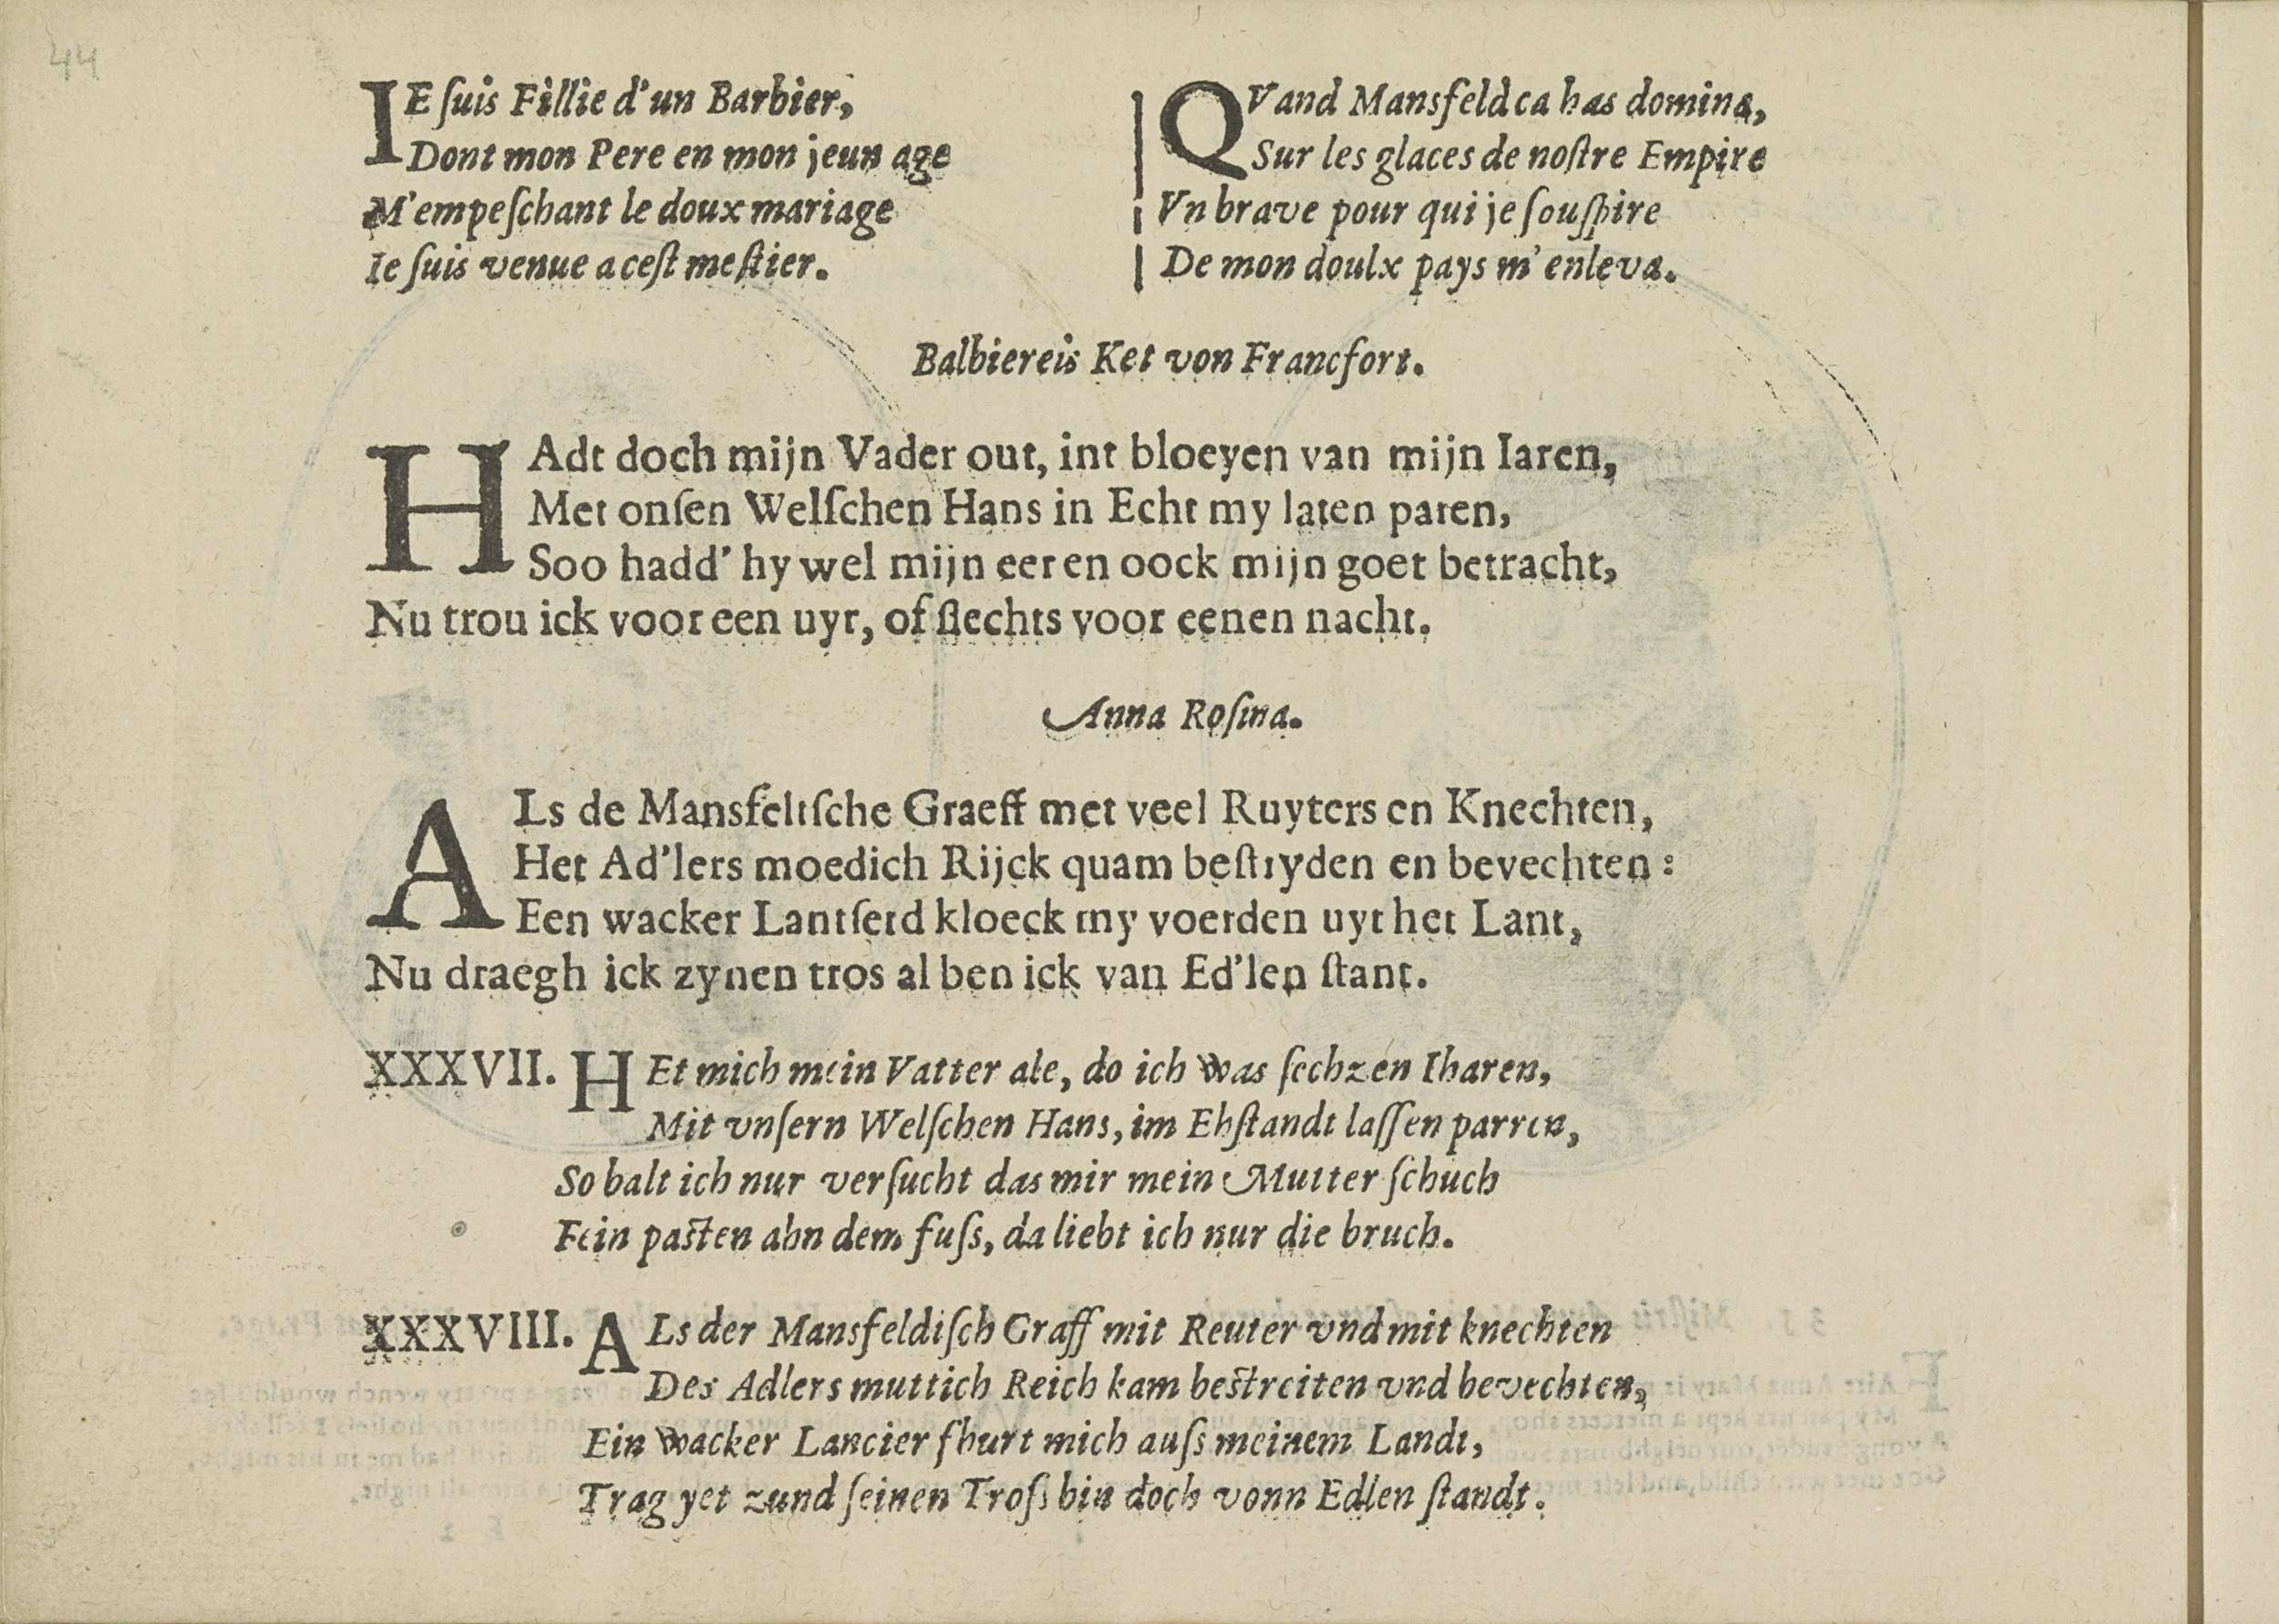 44
IE ſuis Fillie d'un Barbier,
Dont mon Pere en mon jeun age
M'empeſchant le doux mariage
Ie ſuis venue a ceſt meſtier.
QVand Mansfeld ca has domina,
Sur les glaces de noſtre Empire
Vn brave pour qui je ſouſpire
De mon doulx pays m'enleva.
Balbiereis Ket von Francfort.
HAdt doch mijn Vader out, int bloeyen van mijn Iaren,
Met onſen Welſchen Hans in Echt my laten paren,
Soo hadd' hy wel mijn eer en oock mijn goet betracht,
Nu trou ick voor een uyr, of ſlechts voor eenen nacht.
Anna Roſina.
ALs de Mansfeltſche Graeff met veel Ruyters en Knechten,
Het Ad'lers moedich Rijck quam beſtryden en bevechten:
Een wacker Lantſerd kloeck my voerden uyt het Lant,
Nu draegh ick zynen tros al ben ick van Ed'len ſtant.
XXXVII. HEt mich mein Vatter ale, do ich was ſechzen Iharen,
Mit vnſern Welſchen Hans, im Ehſtandt laſſen parren,
So balt ich nur verſucht das mir mein Mutter ſchuch
Fein paſten ahn dem fuſs, da liebt ich nur die bruch.
XXXVIII. ALs der Mansfeldiſch Graff mit Reuter vnd mit knechten
Des Adlers muttich Reich kam beſtreiten vnd bevechten,
Ein wacker Lancier fhurt mich auſs meinem Landt,
Trag yet zund ſeinen Troſs bin doch vonn Edlen ſtandt.